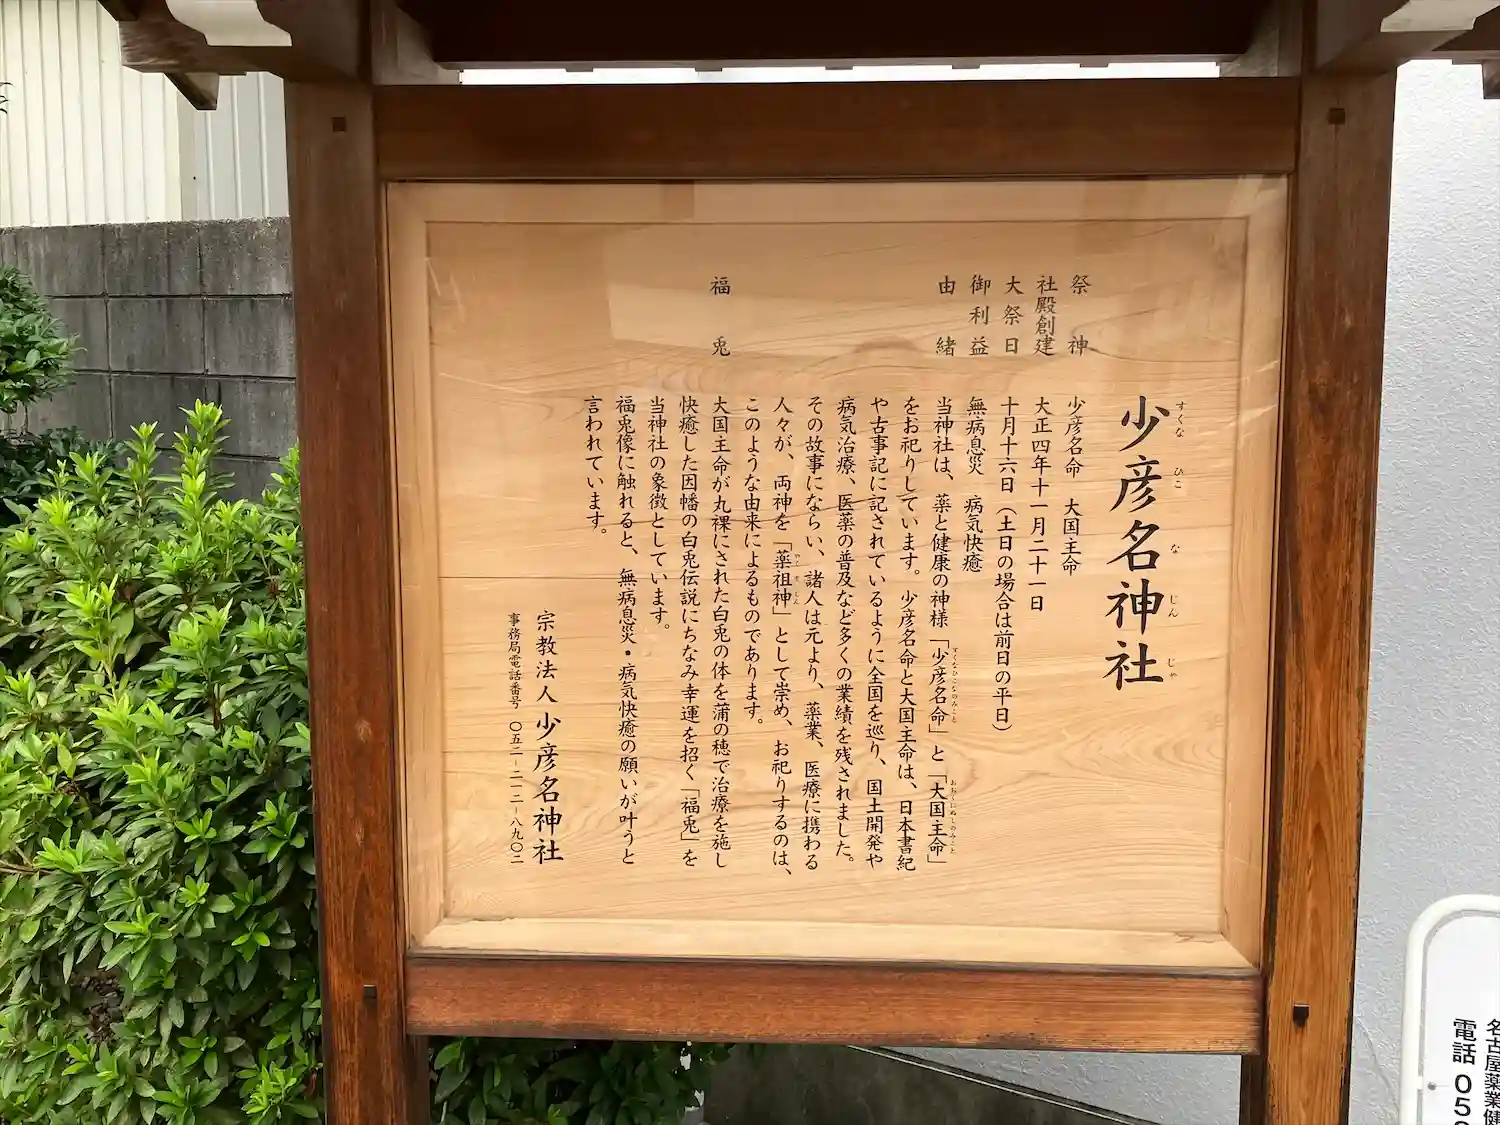 少彦名神社
すくな ひこ な じん じゃ
祭神 少彦名命 大国主命
社殿創建 大正四年十一月二十一日
大祭日 十月十六日(土日の場合は前日の平日)
御利益 無病息災 病気快癒
由緒 当神社は、薬と健康の神様「少彦名命」と「大国主命」
すくなひこなのみこと おおくにぬしのみこと
をお祀りしています。少彦名命と大国主命は、日本書紀
や古事記に記されているように全国を巡り、国土開発や
病気治療、医薬の普及など多くの業績を残されました。
その故事にならい、諸人は元より、薬業、医療に携わる
人々が、両神を「薬祖神」として崇め、お祀りするのは、
やくそじん
このような由来によるものであります。
福兎 大国主命が丸裸にされた白兎の体を蒲の穂で治療を施し
快癒した因幡の白兎伝説にちなみ幸運を招く「福兎」を
当神社の象徴としています。
福兎像に触れると、無病息災・病気快癒の願いが叶うと
言われています。
宗教法人 少彦名神社
事務局電話番号 〇五二-二一二-八九〇二
名古屋薬業健
電話 05